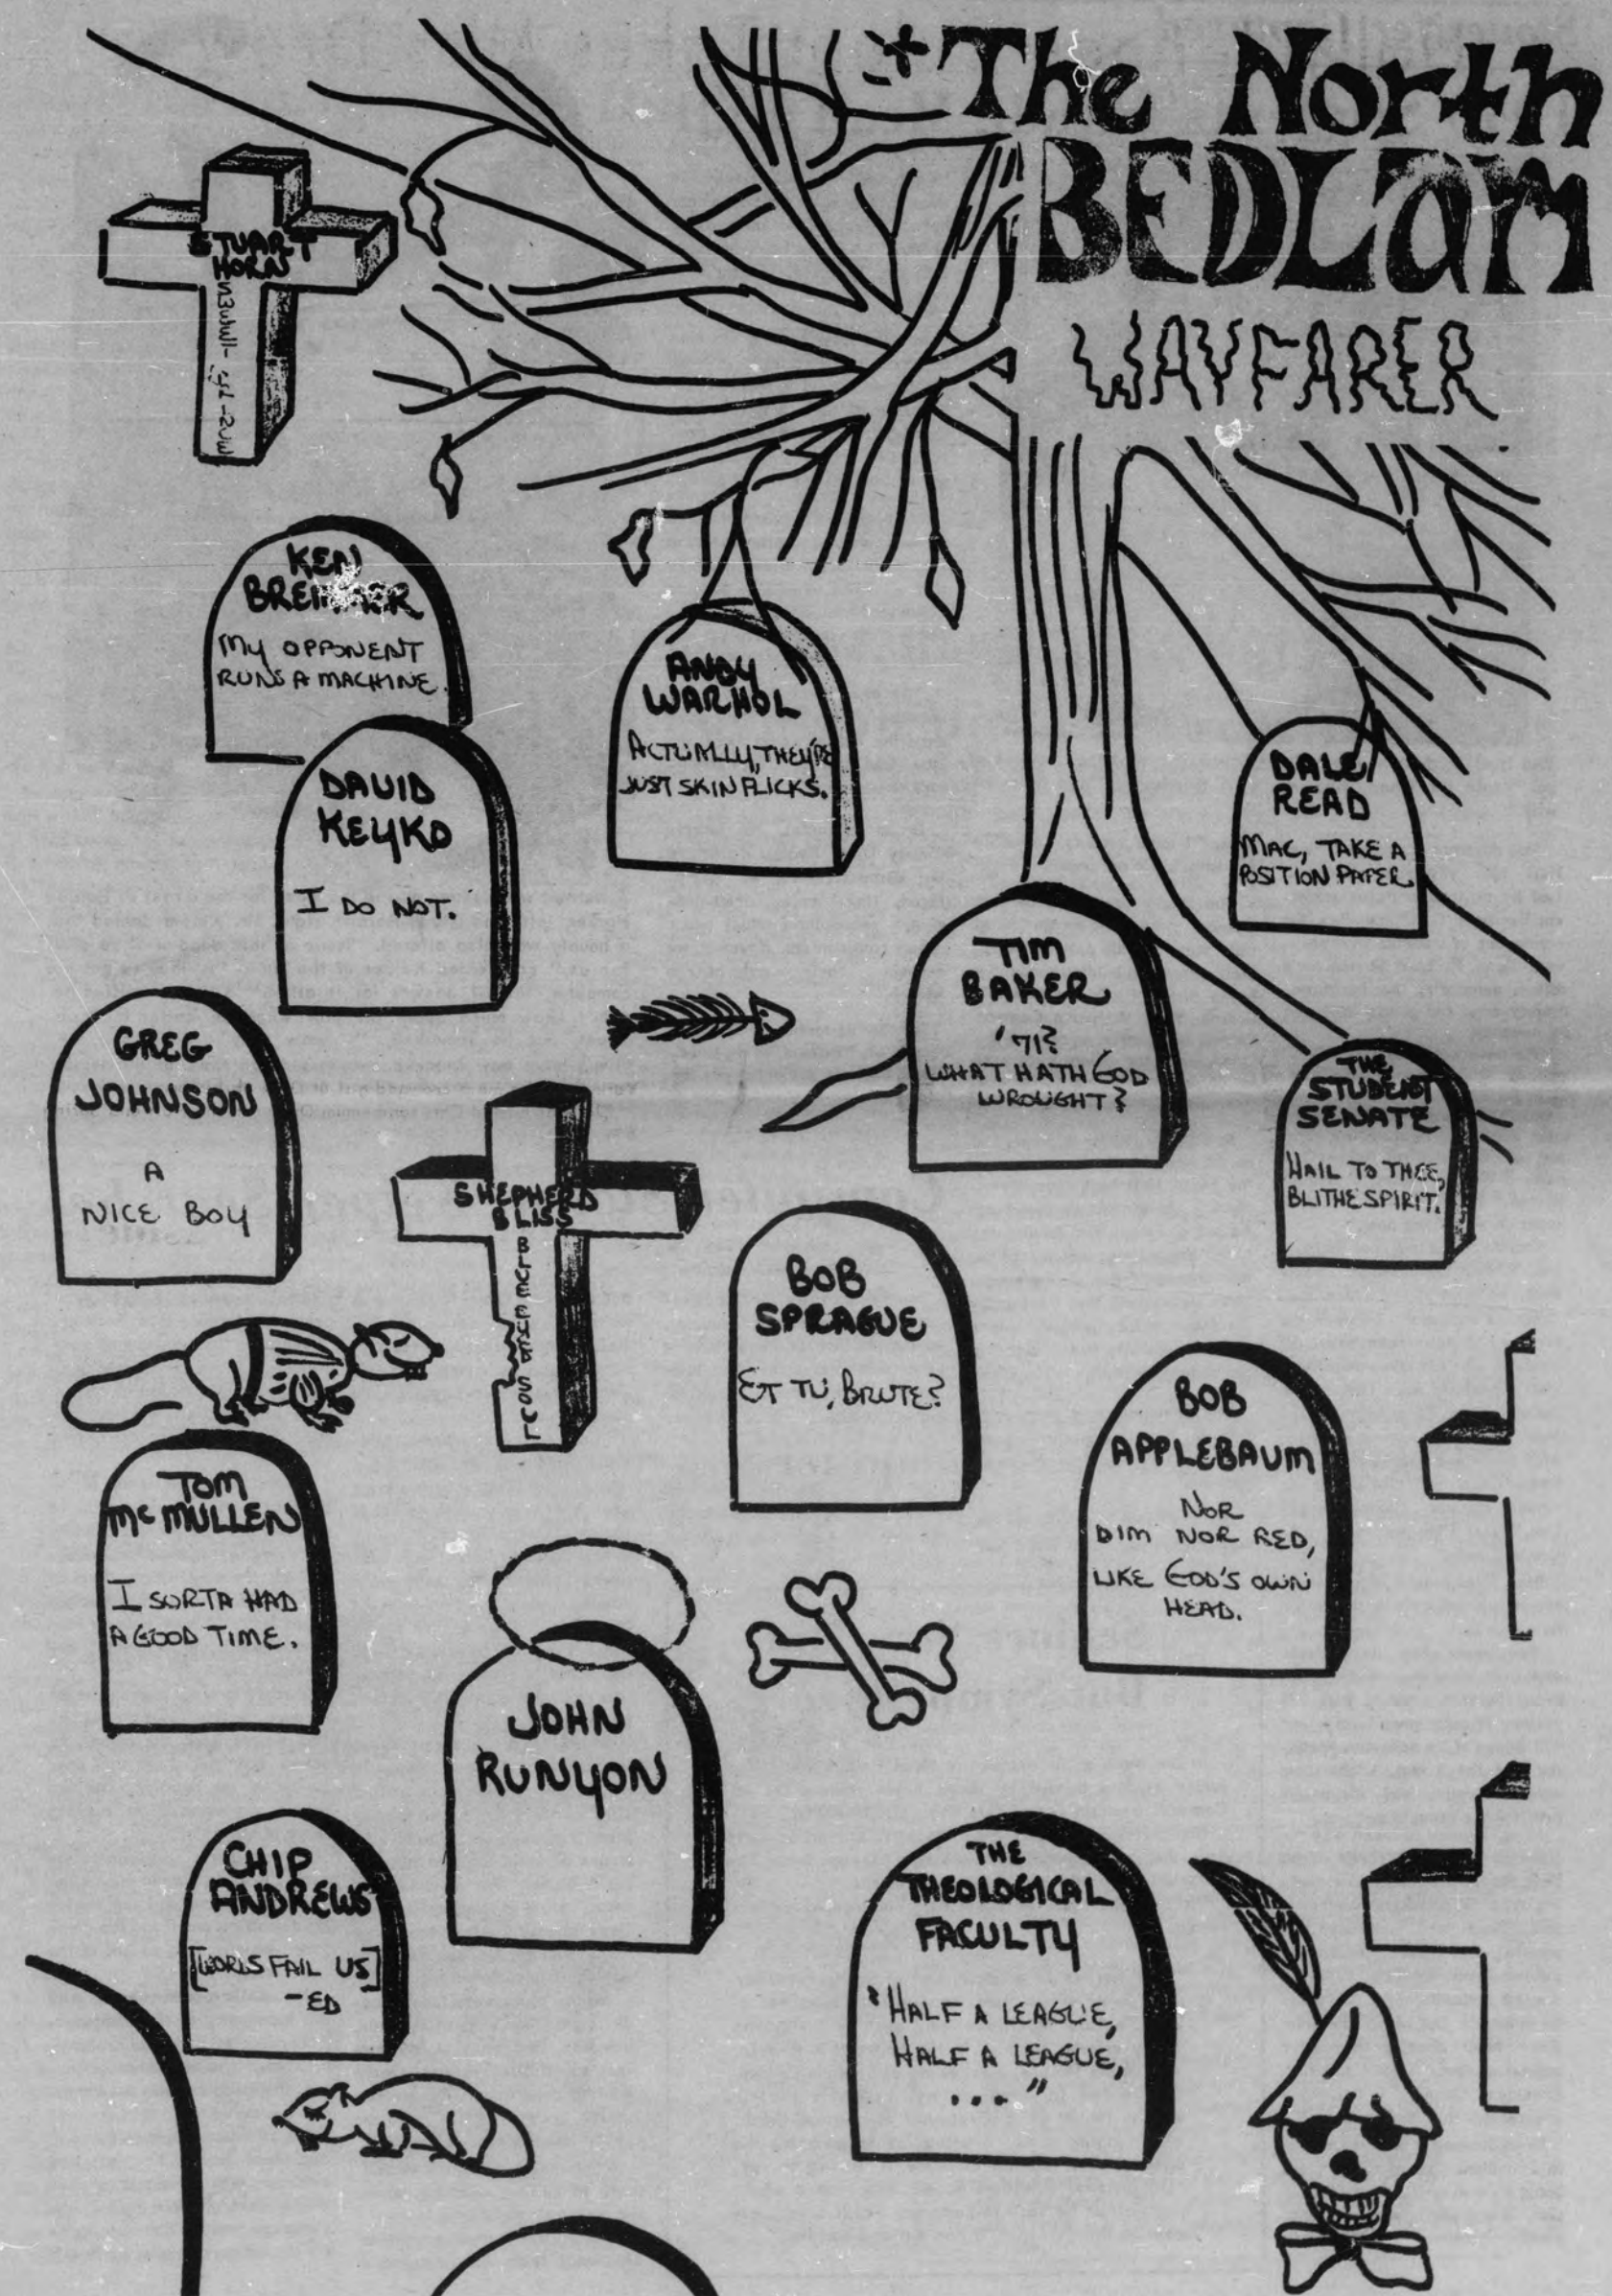 The North
BEDLAM
WAYFARER
STUART
HORN
KEN
MY OPPONENT
RUNS A MACHINE.
DAVID
KEYKO
I DO NOT.
ANDY
WARHOL
ACTUALLY, THEY'RE
JUST SKIN FLICKS.
DALE
READ
MAC, TAKE A
POSITION PAPER.
TIM
BAKER
'71?
WHAT HATH GOD
WROUGHT?
THE
STUDENT
SENATE
HAIL TO THEE,
BLITHE SPIRIT.
GREG
JOHNSON
A
NICE BOY
SHEPHERD
BLISS
BOB
SPRAGUE
ET TU, BRUTE?
BOB
APPLEBAUM
NOR
DIM NOR RED,
LIKE GOD'S OWN
HEAD.
TOM
McMULLEN
I SORTA HAD
A GOOD TIME.
JOHN
RUNYON
CHIP
ANDREWS
[WORDS FAIL US]
-ED
THE
THEOLOGICAL
FACULTY
"HALF A LEAGUE,
HALF A LEAGUE,
..."